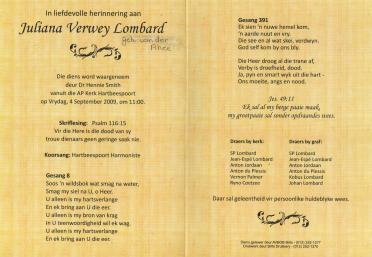 In liefdevolle herinnering aan
Juliana Verwey Lombard
geb. van der
Rhee
Die diens word waargeneem
deur Dr Hennie Smith
vanuit die AP Kerk Hartbeespoort
op Vrydag, 4 September 2009, om 11:00.
Skriflesing: Psalm 116:15
Vir die Here is die dood van sy
troue dienaars geen geringe saak nie.
Koorsang: Hartbeespoort Harmoniste
Gesang 8
Soos 'n wildsbok wat smag na water,
Smag my siel na U, o Heer.
U alleen is my hartsverlange
En ek bring aan U die eer.
U alleen is my bron van krag
In U teenwoordigheid wil ek wag.
U alleen is my hartsverlange
En ek bring aan U die eer.
Gesang 391
Ek sien 'n nuwe hemel kom,
'n aarde nuut en vry.
Die see en al wat skei, verdwyn.
God self kom by ons bly.
Die Heer droog al die trane af,
Verby is droefheid, dood.
Ja, pyn en smart wyk uit die hart -
Ons moeite, angs en nood.
Jes. 49:11
Ek sal al my berge paaie maak,
my grootpaaie sal sonder opdraandes wees.
Draers by kerk:
SP Lombard
Jean-Espé Lombard
Anton Jordaan
Anton du Plessis
Vernon Palmer
Reno Coetzee
Draers by graf:
SP Lombard
Jean-Espé Lombard
Anton Jordaan
Anton du Plessis
Kobus Lombard
Johan Lombard
Daar sal geleentheid vir persoonlike huldeblyke wees.